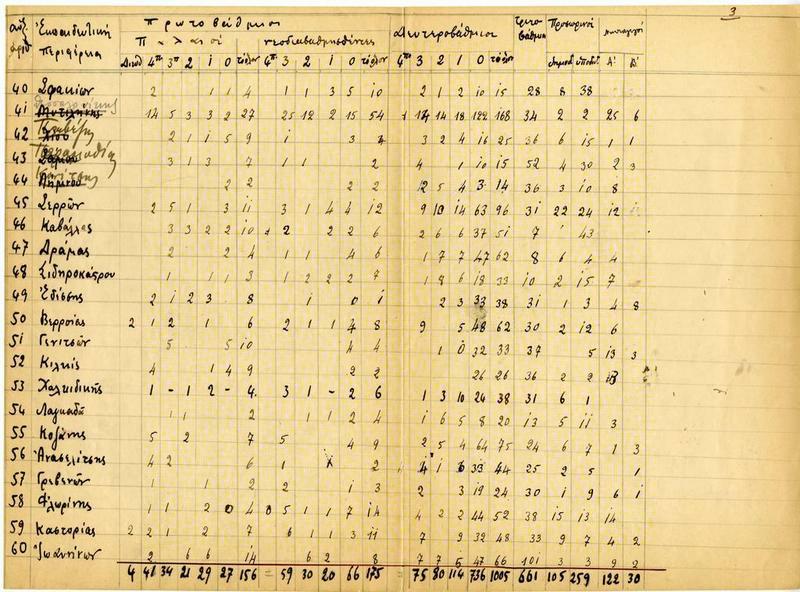 3
αὔξ. Ἐκπαιδευτική Πρωτοβάθμιοι Δευτεροβάθμιοι Τριτο Προσωρινοί
ἀριθ Περιφέρεια Παλαιοί νεοδιαβαθμισθέντες βάθμιοι
4 3 2 1 0 4 3 2 1 0 4 3 2 1 0 Α' Β'
40 Σφακίων 2 1 1 4 1 1 3 5 10 2 1 2 10 15 28 8 38
41 Μυτιλήνης 14 5 3 3 2 27 25 12 2 15 54 14 18 122 168 34 2 2 25 6
42 Χίου 2 1 1 5 9 1 3 3 2 4 16 25 36 6 15 1 1
43 Σάμου 3 1 3 7 1 1 2 4 1 10 15 52 4 30 2 3
44 Λήμνου 2 2 2 2 12 5 4 3 14 36 3 10 8
45 Σερρῶν 2 5 1 3 11 3 1 4 4 12 9 10 14 63 96 31 22 24 12
46 Καβάλλας 3 3 2 2 10 2 2 2 6 2 6 6 37 51 7 43
47 Δράμας 2 2 4 1 1 4 6 1 7 7 47 62 8 6 4 4
48 Σιδηροκάστρου 1 1 1 3 1 2 2 2 7 1 8 6 18 33 10 2 15 7
49 Ἐδέσσης 2 1 2 3 8 1 0 1 2 3 33 38 31 1 3 4 8
50 Βερροίας 2 1 2 1 6 2 1 1 4 8 9 5 48 62 30 2 12 6
51 Γενιτσῶν 5 5 10 4 4 1 0 32 33 37 5 13 3
52 Κιλκίς 4 1 4 9 2 2 26 26 36 2 2
53 Χαλκιδικῆς 1 - 1 2 - 4 3 1 - 2 6 1 3 10 24 38 31 6 1
54 Λαγκαδᾶ 1 1 2 1 1 2 4 1 6 5 8 20 13 5 11 3
55 Κοζάνης 5 2 7 5 4 9 2 5 4 64 75 24 6 7 1 3
56 Ἀνασελίτσης 4 2 6 1 2 4 1 6 33 44 25 2 5 1
57 Γρεβενῶν 1 1 2 2 1 3 2 3 19 24 30 1 9 6 1
58 Φλωρίνης 1 1 2 0 4 0 5 1 1 7 14 4 2 2 44 52 38 15 13 14
59 Καστορίας 2 2 1 2 7 6 1 1 3 11 7 9 32 48 33 9 7 4 2
60 Ἰωαννίνων 2 6 6 14 6 2 8 7 7 5 47 66 101 3 3 9 2
4 41 34 21 29 27 156 = 59 30 20 66 175 = 75 80 114 736 1005 661 105 259 122 30